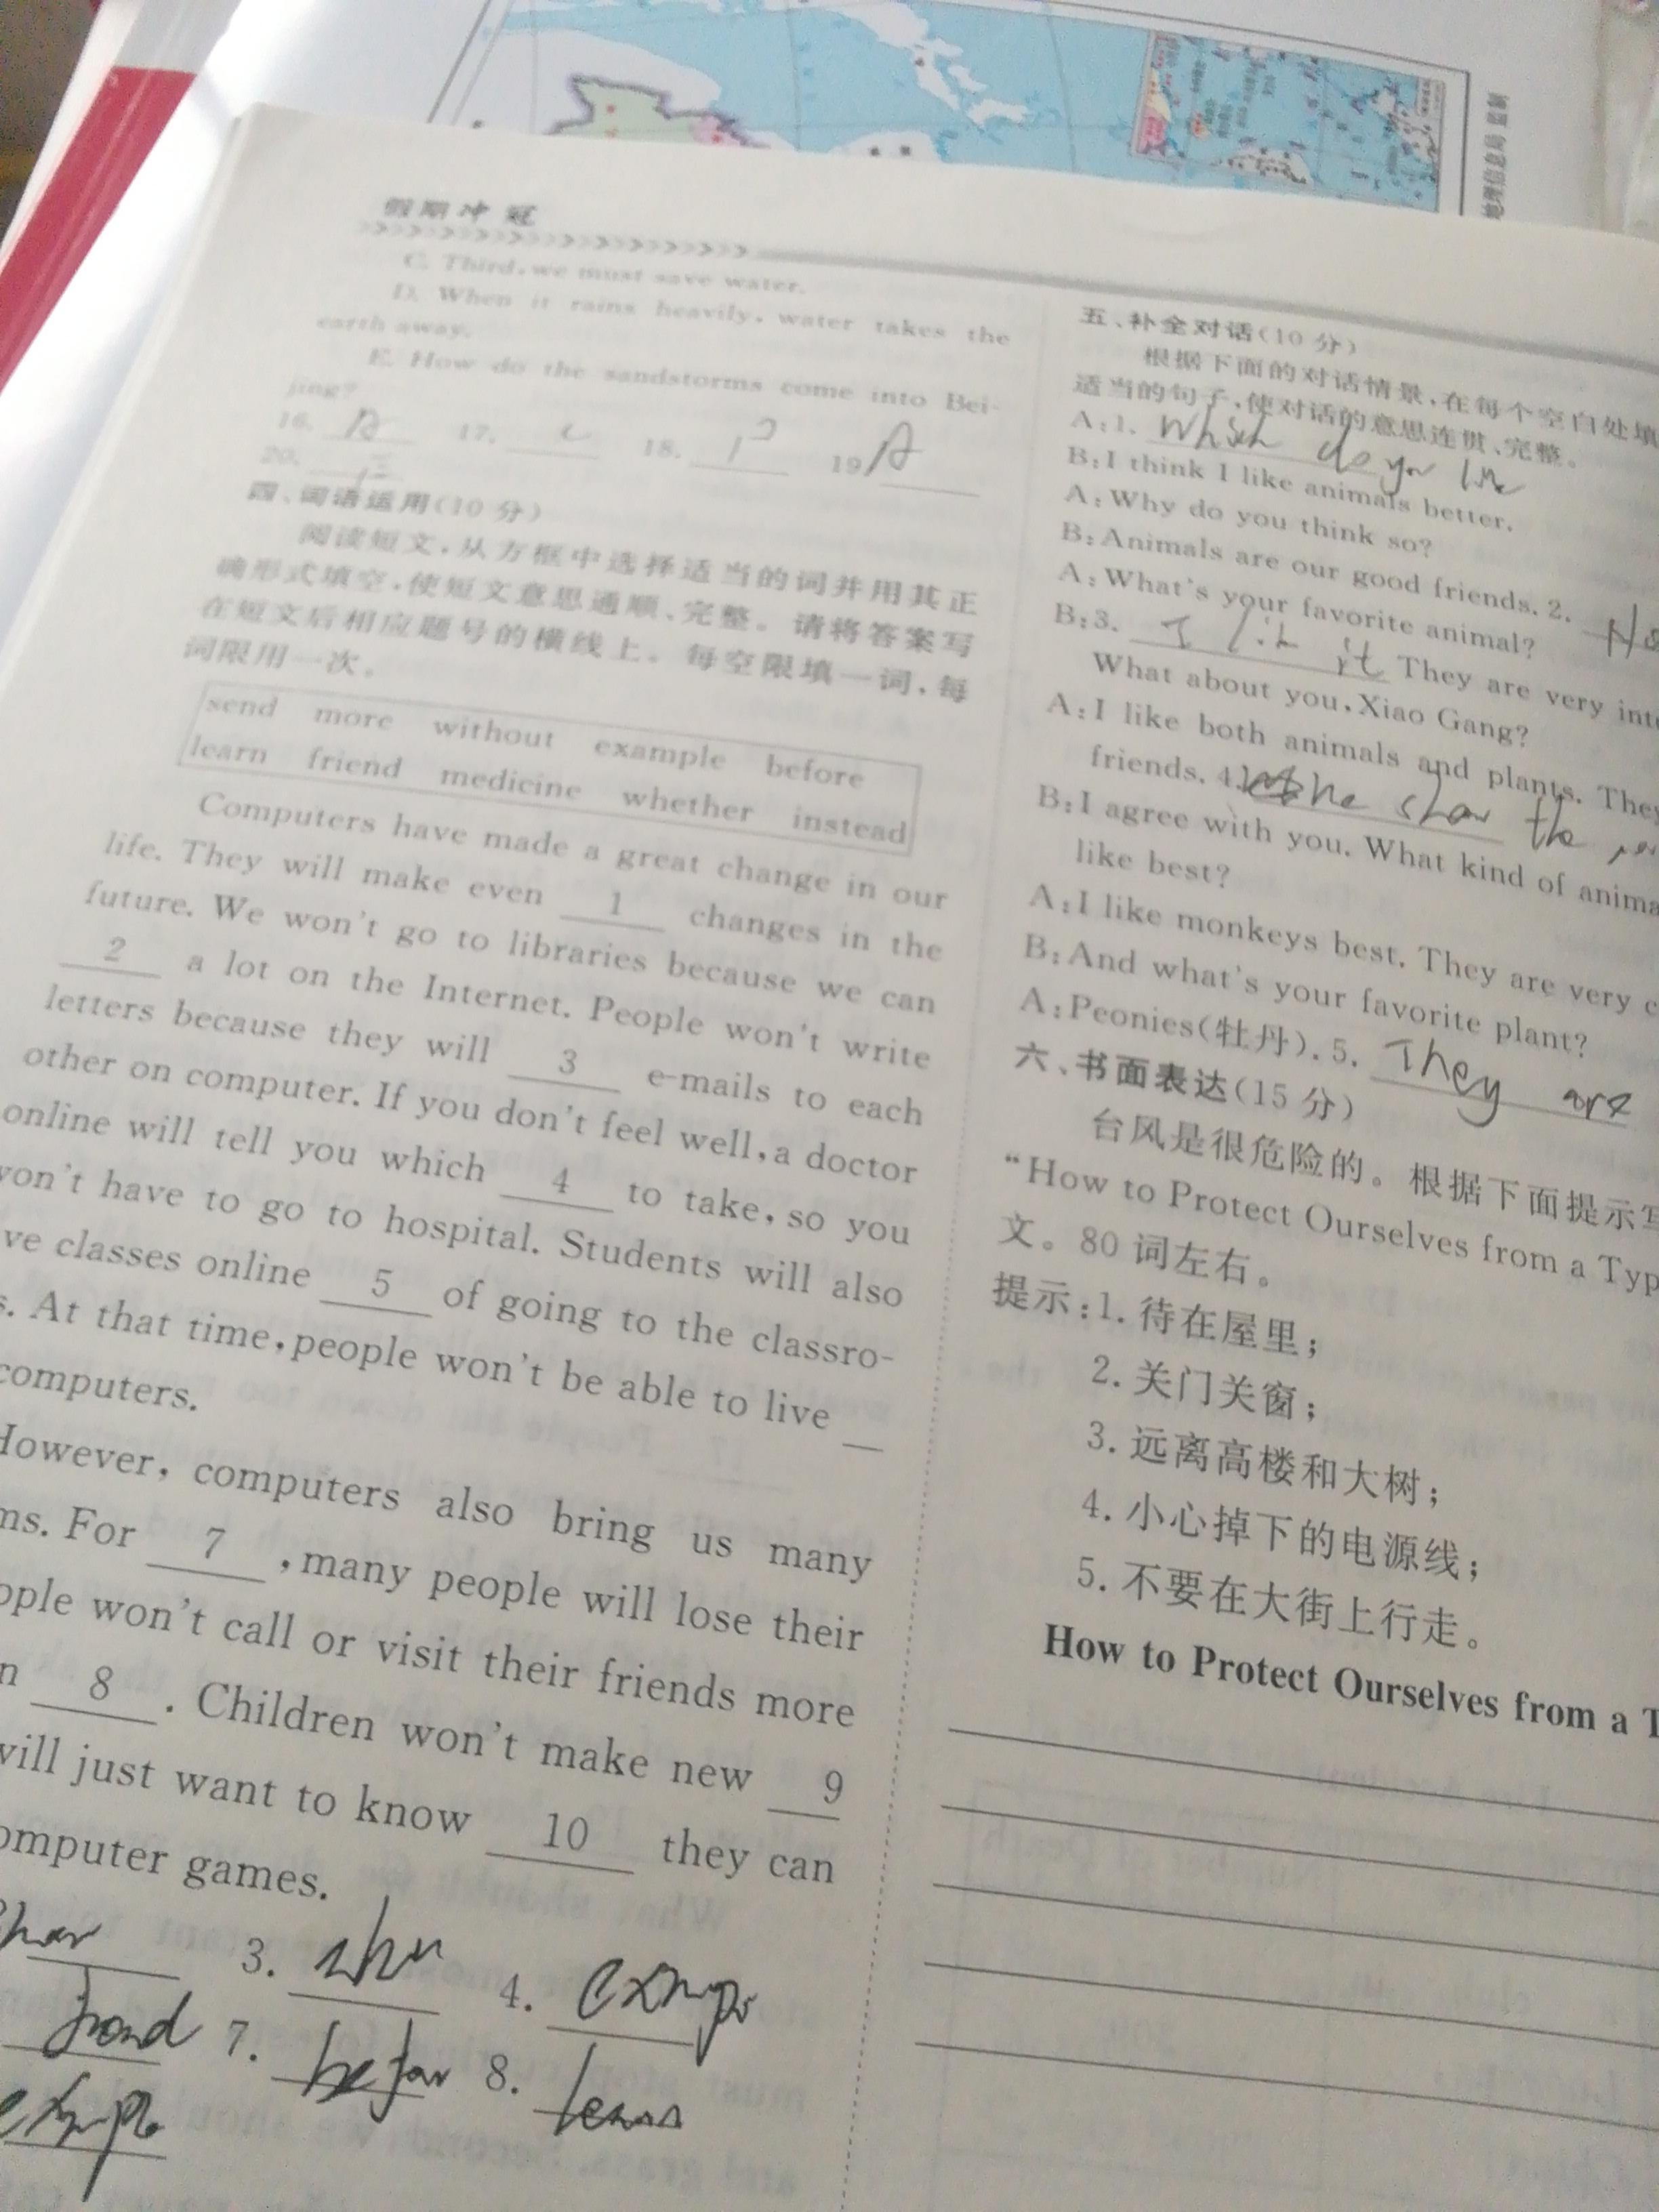 地理信息局 监制
假期冲冠
C. Third, we must save water.
D. When it rains heavily, water takes the
earth away.
E. How do the sandstorms come into Bei-
jing?
16. 17. 18. 19 A
20.
四、词语运用(10分)
阅读短文,从方框中选择适当的词并用其正
确形式填空,使短文意思通顺、完整。请将答案写
在短文后相应题号的横线上。每空限填一词,每
词限用一次。
send more without example before
learn friend medicine whether instead
Computers have made a great change in our
life. They will make even 1 changes in the
future. We won't go to libraries because we can
2 a lot on the Internet. People won't write
letters because they will 3 e-mails to each
other on computer. If you don't feel well, a doctor
online will tell you which 4 to take, so you
won't have to go to hospital. Students will also
ve classes online 5 of going to the classro-
s. At that time, people won't be able to live
computers.
However, computers also bring us many
ms. For 7 , many people will lose their
ople won't call or visit their friends more
n 8 . Children won't make new 9
will just want to know 10 they can
omputer games.
3. 4.
7. 8.
五、补全对话(10分)
根据下面的对话情景,在每个空白处填
适当的句子,使对话的意思连贯、完整。
A:1. do you
B:I think I like animals better.
A:Why do you think so?
B:Animals are our good friends. 2.
A:What's your favorite animal?
B:3. I it They are very int
What about you, Xiao Gang?
A:I like both animals and plants. They
friends. 4. the
B:I agree with you. What kind of anima
like best?
A:I like monkeys best. They are very c
B:And what's your favorite plant?
A:Peonies(牡丹). 5. They are
六、书面表达(15分)
台风是很危险的。根据下面提示写
“How to Protect Ourselves from a Typ
文。80词左右。
提示:1. 待在屋里;
2. 关门关窗;
3. 远离高楼和大树;
4. 小心掉下的电源线;
5. 不要在大街上行走。
How to Protect Ourselves from a T